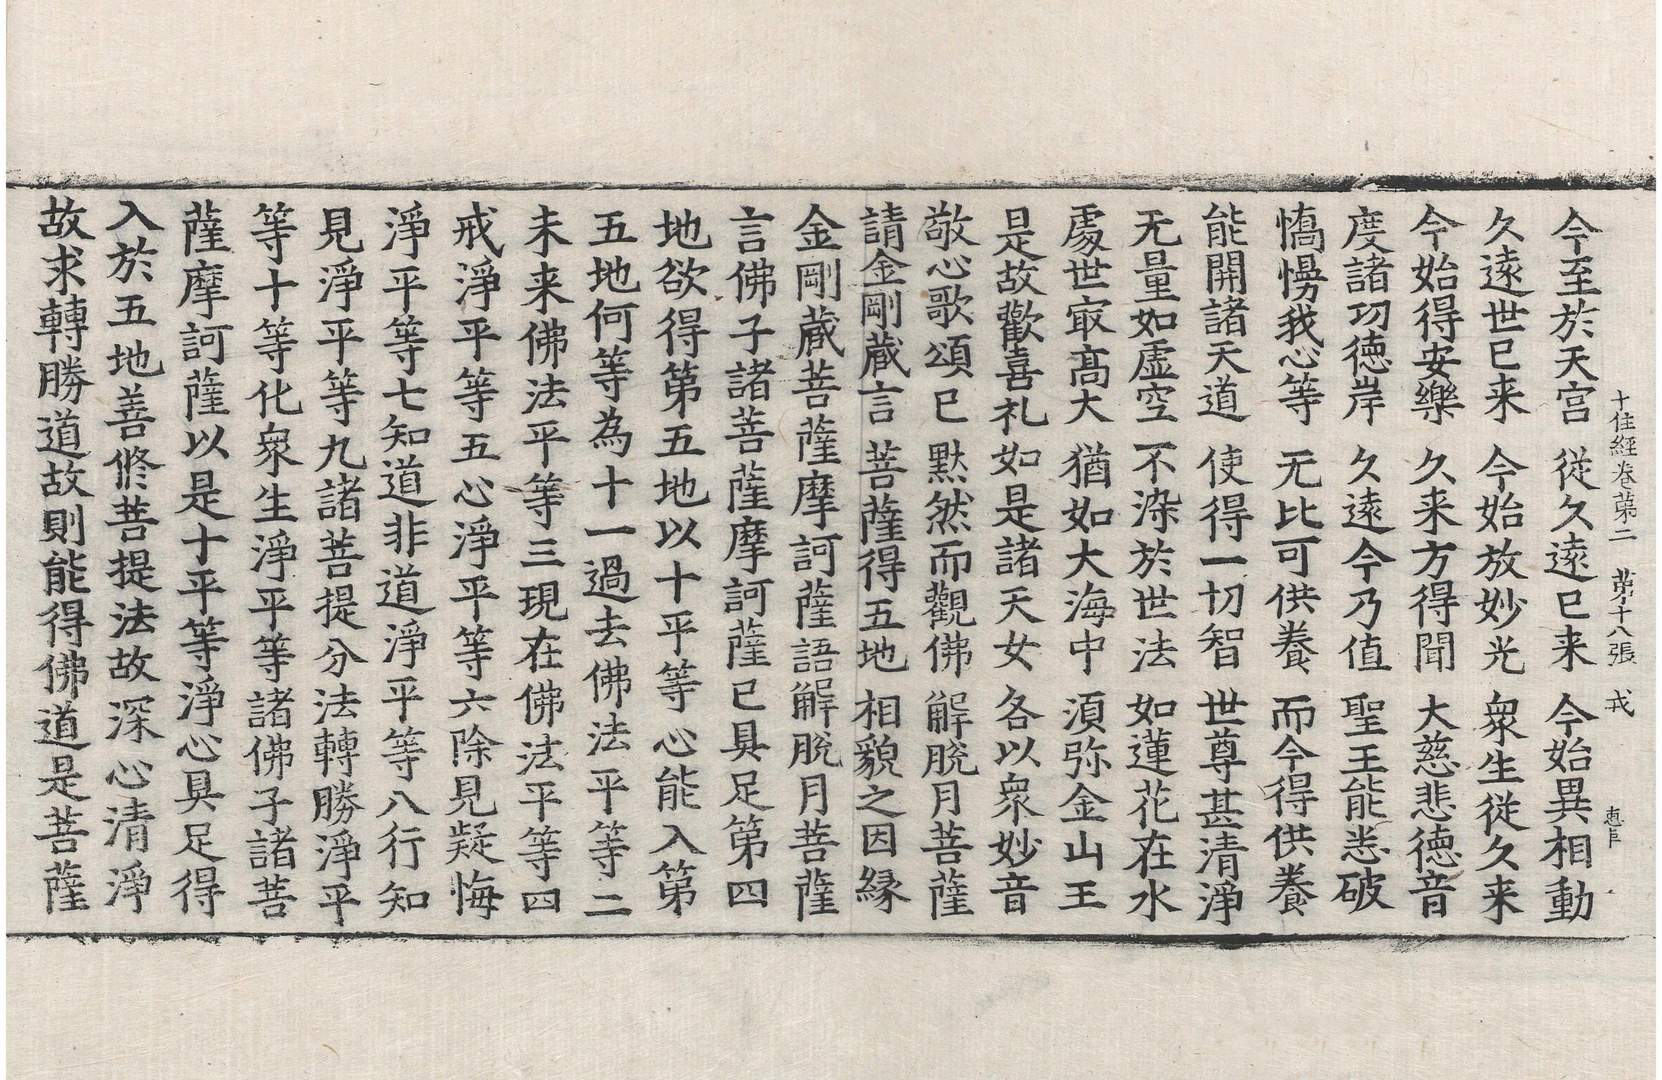 十住經卷第二　第十八張　戎
今至於天宮　從久遠已来　今始異相動
久遠世已来　今始放妙光　衆生從久来
今始得安樂　久来方得聞　大慈悲德音
度諸功德岸　久遠今乃值　聖王能悉破
憍慢我心等　无比可供養　而今得供養
能開諸天道　使得一切智　世尊甚清淨
无量如虛空　不染於世法　如蓮花在水
處世㝡高大　猶如大海中　須弥金山王
是故歡喜礼　如是諸天女　各以衆妙音
敬心歌頌已　默然而觀佛　解脫月菩薩
請金剛蔵言　菩薩得五地　相貌之因縁
金剛蔵菩薩摩訶薩語解脫月菩薩
言佛子諸菩薩摩訶薩已具足第四
地欲得第五地以十平等心能入第
五地何等為十一過去佛法平等二
未来佛法平等三現在佛法平等四
戒淨平等五心淨平等六除見疑悔
淨平等七知道非道淨平等八行知
見淨平等九諸菩提分法轉勝淨平
等十等化衆生淨平等諸佛子諸菩
薩摩訶薩以是十平等淨心具足得
入於五地善修菩提法故深心清淨
故求轉勝道故則能得佛道是菩薩